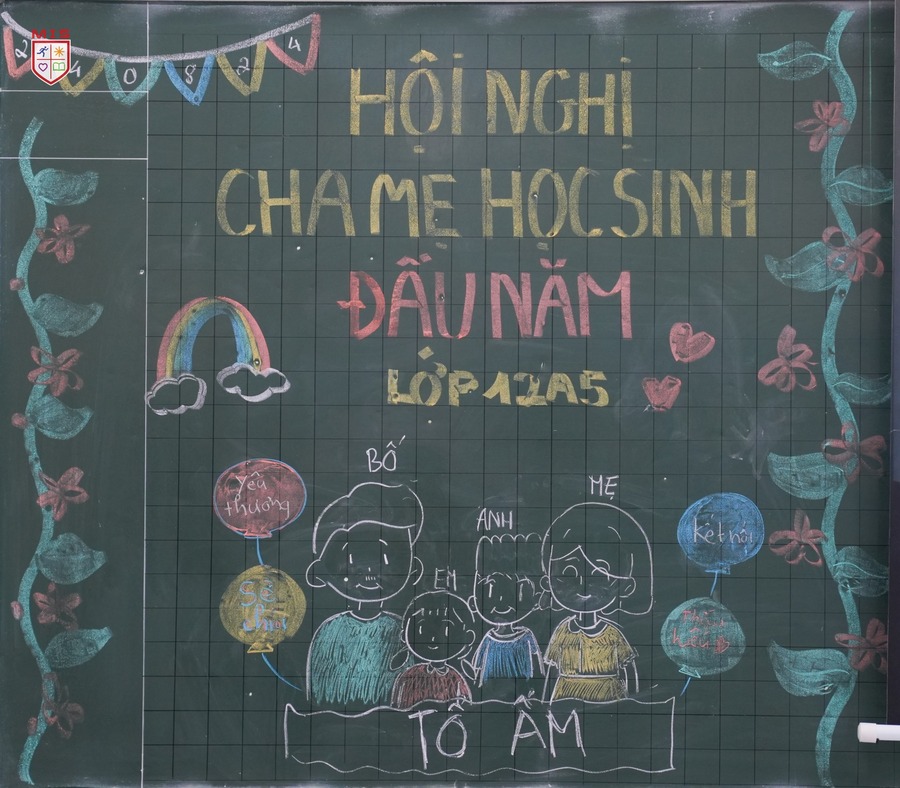 MIS
2 4 0 8 2 4
HỘI NGHỊ
CHA MẸ HỌC SINH
ĐẦU NĂM
LỚP 12A5
BỐ
MẸ
ANH
EM
Yêu
thương
Sẻ
chia
Kết nối
Thấu
hiểu
TỔ ẤM